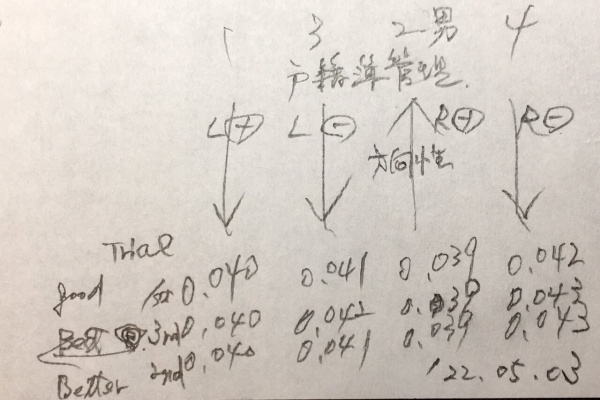 1 3 2 男 4
戸籍簿管理
L⊕ L⊖ R⊕ R⊖
方向性
Trial
good 1st 0.040 0.041 0.039 0.042
Best 3rd 0.040 0.042 0.039 0.043
Better 2nd 0.040 0.041 0.039 0.043
'22.05.03